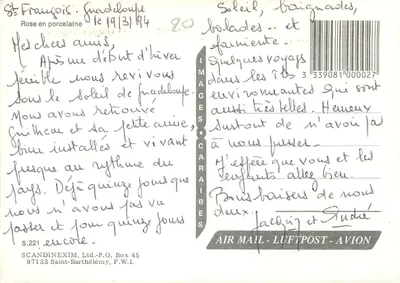 St François - Guadeloupe
Rose en porcelaine
le 19/3/94
20
Mes chers amis,
Après me début d'hiver
pénible nous revivons
sous le soleil de guadeloupe.
Nous avons retrouvé
et sa petite amie,
bien installés et vivant
presque au rythme du
pays. Déjà quinze jours que
nous n'avons pas vu
passer et pour quinze jours
encore.
S.221
SCANDINEXIM, Ltd.-P.O. Box 45
97133 Saint-Barthélémy, F.W.I.
IMAGES CARAIBES
Soleil, baignades,
balades... et
farniente.
Quelques voyages
dans les îles
environnantes qui sont
aussi très belles. Heureux
surtout de n'avoir pas
à nous presser.
J'espère que vous et les
enfants allez bien.
Bons baisers de nous
deux.
Jacquis et André
3 339081 000027
AIR MAIL - LUFTPOST - AVION